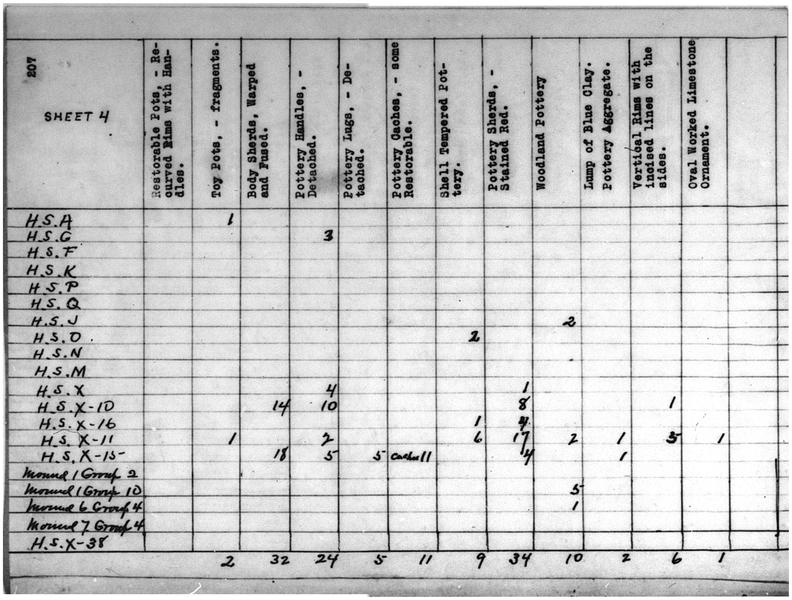 207
SHEET 4
Restorable Pots, - Re-
curved Rims with Han-
dles.
Toy Pots, - fragments.
Body Sherds, Warped
and Fused.
Pottery Handles, -
Detached.
Pottery Lugs, - De-
tached.
Pottery Caches, - some
Restorable.
Shell Tempered Pot-
tery.
Pottery Sherds, -
Stained Red.
Woodland Pottery
Lump of Blue Clay.
Pottery Aggregate.
Vertical Rims with
incised lines on the
sides.
Oval Worked Limestone
Ornament.
H.S.A 1
H.S.G 3
H.S.F
H.S.K
H.S.P
H.S.Q
H.S.J 2
H.S.O 2
H.S.N
H.S.M
H.S.X 4 1
H.S.X-10 14 10 8 1
H.S.X-16 1 4
H.S. X-11 1 2 6 17 2 1 5 1
H.S.X-15 18 5 5 Caches 11 4 1
Mound 1 Group 2
Mound 1 Group 10 5
Mound 6 Group 4 1
Mound 7 Group 4
H.S.X-38
2 32 24 5 11 9 34 10 2 6 1